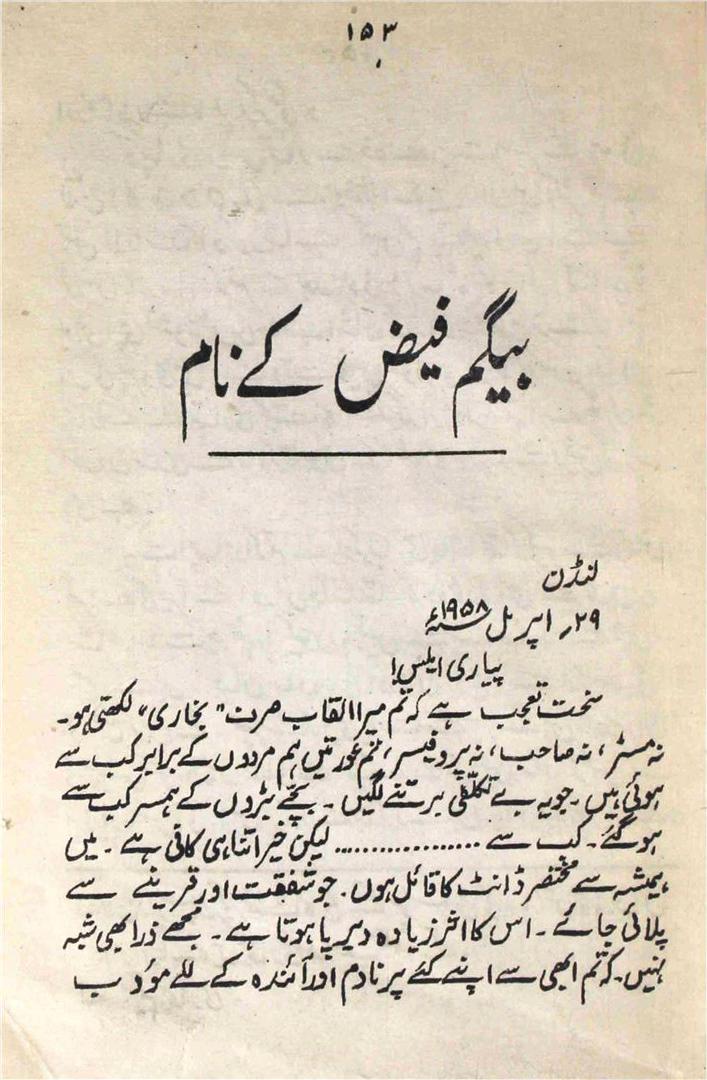 ۱۵۳
بیگم فیض کے نام
لنڈن
۲۹؍ اپریل ۱۹۵۸ء
پیاری ایلس!
سخت تعجب ہے کہ تم میرا القاب صرف "بخاری" لکھتی ہو۔
نہ مسٹر، نہ صاحب، نہ پروفیسر، تم عورتیں ہم مردوں کے برابر کب سے
ہوئی ہیں۔ جو یہ بے تکلفی برتنے لگیں۔ بچے بڑوں کے ہمسر کب سے
ہو گئے۔ کب سے ................. لیکن خیر اتنا ہی کافی ہے۔ میں
ہمیشہ سے مختصر ڈانٹ کا قائل ہوں۔ جو شفقت اور قرینے سے
پلائی جائے۔ اس کا اثر زیادہ دیرپا ہوتا ہے۔ مجھے ذرا بھی شبہ
نہیں۔ کہ تم ابھی سے اپنے کئے پر نادم اور آئندہ کے للے مؤدب